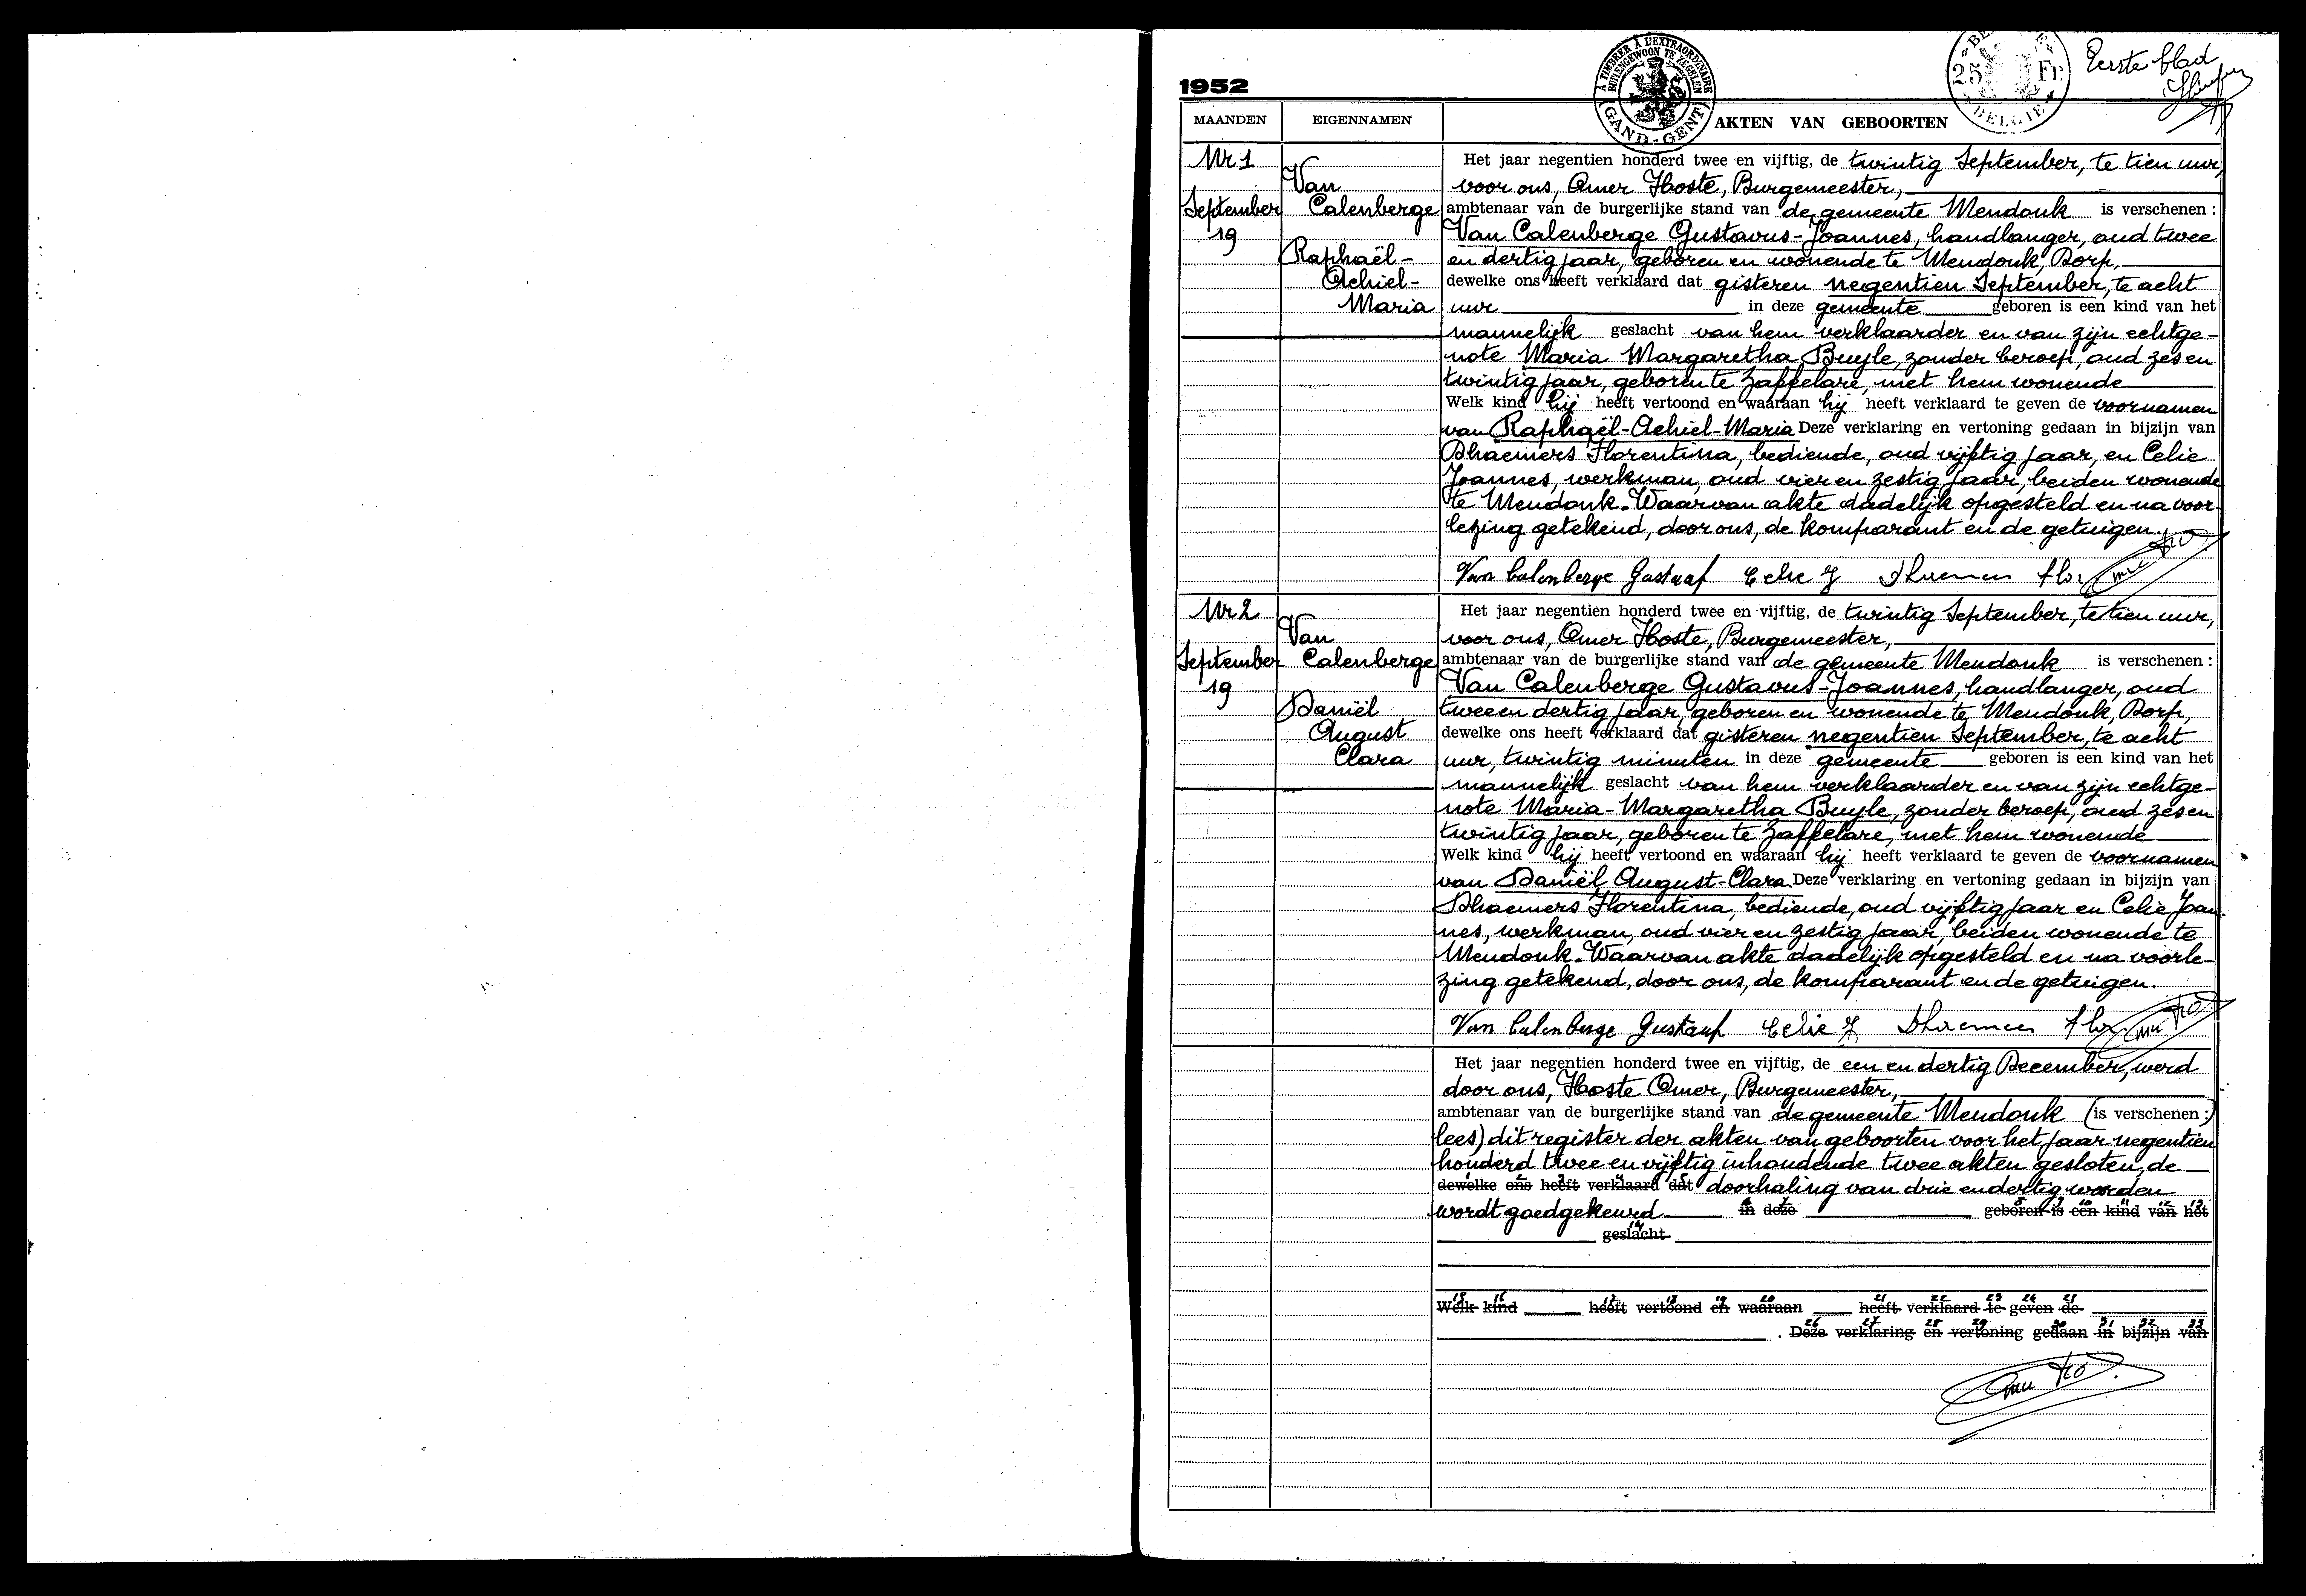 1952
À TIMBRER À L'EXTRAORDINAIRE
BUITENGEWOON TE ZEGELEN
GAND-GENT
25 Fr.
BELGIE
Eerste blad
MAANDEN EIGENNAMEN AKTEN VAN GEBOORTEN
Nr 1
September
19
Van
Calenberge
Raphaël-
Achiel-
Maria
Het jaar negentien honderd twee en vijftig, de twintig September, te tien uur,
voor ons, Omer Hoste, Burgemeester,
ambtenaar van de burgerlijke stand van de gemeente Mendonk is verschenen :
Van Calenberge Gustavus-Joannes, handlanger, oud twee
en dertig jaar, geboren en wonende te Mendonk, Dorp,
dewelke ons heeft verklaard dat gisteren negentien September, te acht
uur in deze gemeente geboren is een kind van het
mannelijk geslacht van hem verklaarder en van zijn echtge-
note Maria Margaretha Buyle, zonder beroep, oud zes en
twintig jaar, geboren te Zaffelare, met hem wonende
Welk kind hij heeft vertoond en waaraan hij heeft verklaard te geven de voornamen
van Raphaël-Achiel-Maria Deze verklaring en vertoning gedaan in bijzijn van
Dhaemers Florentina, bediende, oud vijftig jaar, en Celie
Joannes, werkman, oud vier en zestig jaar, beiden wonende
te Mendonk. Waarvan akte dadelijk opgesteld en na voor-
lezing getekend, door ons, de komparant en de getuigen.
Van Calenberge Gustaaf Celie J Dhaemers Flor
Nr 2
September
19
Van
Calenberge
Daniël
August
Clara
Het jaar negentien honderd twee en vijftig, de twintig September, te tien uur,
voor ons, Omer Hoste, Burgemeester,
ambtenaar van de burgerlijke stand van de gemeente Mendonk is verschenen :
Van Calenberge Gustavus-Joannes, handlanger, oud
twee en dertig jaar, geboren en wonende te Mendonk, Dorp,
dewelke ons heeft verklaard dat gisteren negentien September, te acht
uur, twintig minuten in deze gemeente geboren is een kind van het
mannelijk geslacht van hem verklaarder en van zijn echtge-
note Maria-Margaretha Buyle, zonder beroep, oud zes en
twintig jaar, geboren te Zaffelare, met hem wonende
Welk kind hij heeft vertoond en waaraan hij heeft verklaard te geven de voornamen
van Daniël August-Clara. Deze verklaring en vertoning gedaan in bijzijn van
Dhaemers Florentina, bediende, oud vijftig jaar en Celie Joan-
nes, werkman, oud vier en zestig jaar, beiden wonende te
Mendonk. Waarvan akte dadelijk opgesteld en na voorle-
zing getekend, door ons, de komparant en de getuigen.
Van Calenberge Gustaaf Celie J Dhaemers Flor
Het jaar negentien honderd twee en vijftig, de een en dertig December, werd
door ons, Hoste Omer, Burgemeester,
ambtenaar van de burgerlijke stand van de gemeente Mendonk (is verschenen :)
lees) dit register der akten van geboorten voor het jaar negentien
honderd twee en vijftig inhoudende twee akten gesloten, de
dewelke ons heeft verklaard dat doorhaling van drie en dertig woorden
wordt goedgekeurd in deze geboren is een kind van het
geslacht
Welk kind heeft vertoond en waaraan heeft verklaard te geven de
. Deze verklaring en vertoning gedaan in bijzijn van